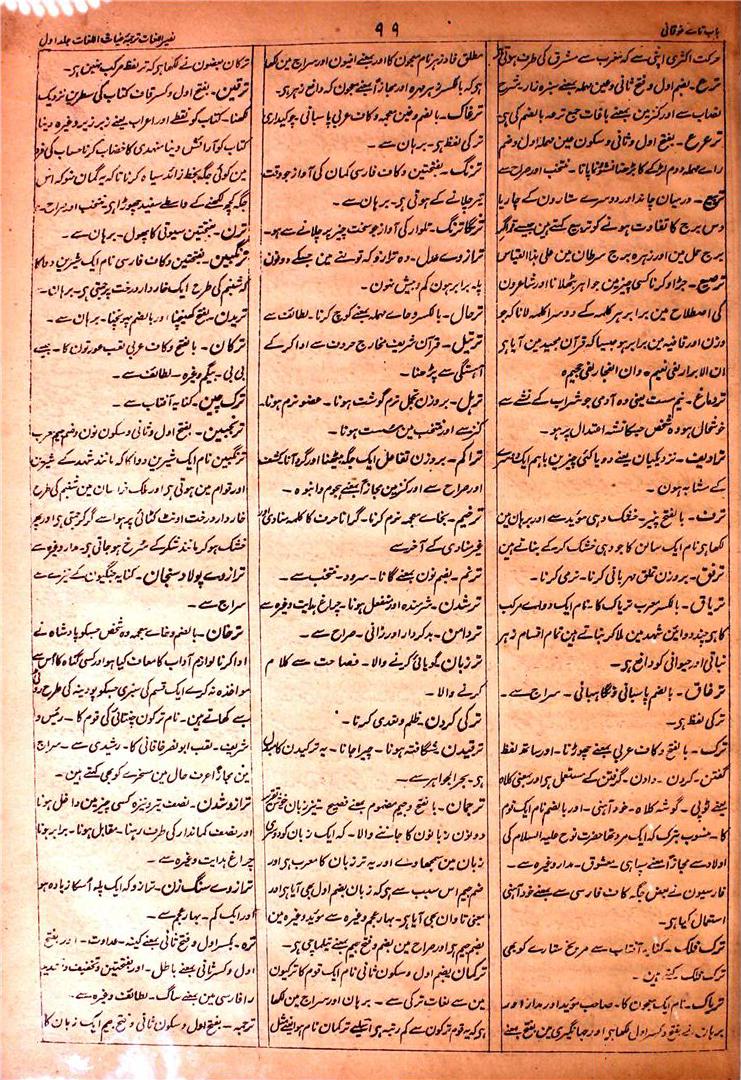 باب تائے فوقانی
۹۹
نصیر اللغات ترجمۂ غیاث اللغات جلد اول
حرکت اکثری اپنی سے کہ مغرب سے مشرق کی طرف ہوتی
ترع۔ بضم اول و فتح ثانی و عین مہملہ بمعنے سبزہ زار۔ شرح
نصاب سے اور کنز مین بمعنے باغات جمع ترعہ بالضم کی ہی
ترعرع۔ بفتح اول و ثانی و سکون عین مہملہ اول و ضم
رائے مہملہ دوم لڑکے کا بڑھنا نشوونما پانا۔ منتخب اور صراح سے
تربیع۔ درمیان چاند اور دوسرے ستارون کے چار یا
دس برج کا تفاوت ہونے کو تربیع کہتے ہین جیسے قمر اگر
برج حمل مین اور زہرہ برج سرطان مین علی ہذا القیاس
ترصیع۔ جڑاؤ کرنا کسی چیز مین جواہر بٹھلانا اور شاعرون
کی اصطلاح مین برابر ہر کلمہ کے دوسرا کلمہ لانا کہ جو
وزن اور قافیہ مین برابر ہو جیسا کہ قرآن مجید مین آیا ہی
ان الابرار لفی نعیم و ان الفجار لفی جحیم
تردماغ۔ نیم مست یعنی وہ آدمی جو شراب کے نشے سے
خوشحال ہو وہ شخص جسکا نشہ اعتدال پر ہو۔
ترادیف۔ نزدیکیان یعنے دو یا کئی چیزین باہم ایک دوسرے
کے مشابہ ہون۔
ترف۔ بالفتح پنیر۔ خشک دہی مؤید سے اور برہان مین
لکھا ہی نام ایک سالن کا جو دہی خشک کر کے بناتے ہین
ترفق۔ بروزن تعلق مہربانی کرنا۔ نرمی کرنا۔
تریاق۔ بالکسر معرب تریاک کا۔ نام ایک دوائے مرکب
کا ہی چند دوائین شہد مین ملا کر بناتے ہین تمام اقسام زہر
نباتی اور حیوانی کو دافع ہی۔
ترغاق۔ بالضم پاسبانی و نگاہبانی۔ سراج سے۔
ترکی لفظ ہی۔
ترک۔ بالفتح و کاف عربی بمعنے چھوڑنا۔ اور ساتھ لفظ
گفتن۔ کردن۔ دادن۔ گرفتن کے مستعمل ہی اور بمعنی کلاہ
یعنے ٹوپی۔ گوشۂ کلاہ۔ خود آہنی۔ اور بالضم نام ایک قوم
کا۔ منسوب بترک کہ ایک مرد تھا حضرت نوح علیہ السلام کی
اولاد سے مجازاً بمعنے سپاہی۔ معشوق۔ مدار وغیرہ سے۔
فارسیون نے بعض جگہ کاف فارسی سے بمعنے خود آہنی
استعمال کیا ہی۔
ترک فلک۔ کنایہ آفتاب سے مریخ ستارے کو بھی
ترک فلک کہتے ہین۔
تریاک۔ نام ایک معجون کا۔ صاحب مؤید اور مدار اور
برہان نے بفتح و کسر اول لکھا ہی اور جہانگیری مین بفتح بمعنے
مطلق فادزہر نام معجون کا اور بمعنے افیون اور سراج مین لکھا
ہی کہ بالکسر زہر مہرہ اور مجازاً بمعنے معجون کہ دافع زہر ہو۔
ترغاک۔ بالضم و غین معجمہ و کاف عربی پاسبانی چوکیداری
ترکی لفظ ہی۔ برہان سے۔
ترنگ۔ بفتحتین و کاف فارسی کمان کی آواز جو وقت
تیر چلانے کے ہوتی ہی۔ برہان سے۔
ترنگا ترنگ۔ تلوار کی آواز جو سخت چیز پر چلانے سے ہو۔
ترازوے عدل۔ وہ ترازو کہ تولنے مین جسکے دونون
پلہ برابر ہون کم و بیش نہون۔
ترحال۔ بالکسر و حائے مہملہ بمعنے کوچ کرنا۔ لطائف سے
ترتیل۔ قرآن شریف مخارج حروف سے ادا کر کے
آہستگی سے پڑھنا۔
تربل۔ بروزن تجمل نرم گوشت ہونا۔ عضو نرم ہونا۔
کنز سے اور منتخب مین سست ہونا۔
تراکم۔ بروزن تفاعل ایک جگہ بیٹھنا اور گرد آنا کشف
اور صراح سے اور کنز مین مجازاً بمعنے ہجوم و انبوہ۔
ترخیم۔ بخائے معجمہ نرم کرنا۔ گرانا حرف کا کلمہ منادی اور
غیر منادی کے آخر سے
ترنم۔ بضم نون بمعنے گانا۔ سرود۔ منتخب سے۔
ترشدن۔ شرمندہ اور منفعل ہونا۔ چراغ ہدایت وغیرہ سے
تردامن۔ بدکردار اور زانی۔ صراح سے۔
ترزبان گویائی کرنے والا۔ فصاحت سے کلام
کرنے والا۔
ترکی کردن۔ ظلم و تعدی کرنا۔
ترقیدن۔ شگافتہ ہونا۔ چیرا جانا۔ یہ ترکیدن کا مبدل
ہی۔ بحر الجواہر سے۔
ترجمان۔ بالفتح و جیم مضموم بمعنے فصیح تیز زبان خوش تقریر
دونون زبانون کا جاننے والا۔ کہ ایک زبان کو دوسری
زبان مین سمجھا دے اور یہ ترزبان کا معرب ہی اور
ضم جیم اس سبب سے ہی کہ زبان بضم اول بھی آیا ہی اور
بمعنی تاوان بھی آیا ہی۔ بہار عجم وغیرہ سے مؤید وغیرہ مین
بضم جیم ہی اور صراح مین بضم و فتح جیم بمعنے تیلپا چی ہی۔
ترکمان بضم اول و سکون ثانی نام ایک قوم کا ترکیون
مین سے لغات ترکی سے۔ برہان اور سراج مین لکھا
ہی کہ یہ قوم ترکون سے کم رتبہ ہی اسلئے ترکمان نام ہوا یعنے مثل
ترکان کے بعضون نے لکھا ہی کہ تر لفظ مرکب نہین ہی۔
ترقین۔ بفتح اول و کسر قاف کتاب کی سطرین نزدیک
لکھنا۔ کتاب کو نقطے اور اعراب یعنے زیر زبر وغیرہ دینا
کتاب کو آرائش دینا مہندی کا خضاب کرنا حساب کی فرد
مین کوئی جگہ بخط زائد سیاہ کرنا تا کہ یہ گمان نہو کہ اس
جگہ کچھ لکھنے کے واسطے سفید چھوڑا ہی منتخب اور صراح۔
ترن۔ بفتحتین سیوتی کا پھول۔ برہان سے۔
ترنگبین۔ بفتحتین و کاف فارسی نام ایک شیرین دوا کا
کہ شبنم کی طرح ایک خاردار درخت پر جمتی ہی۔ برہان۔
تریدن۔ بفتح کھینچنا اور بالضم پہنچنا۔ برہان سے۔
ترکان۔ بالفتح و کاف عربی لقب عورتون کا۔ جیسے
بی بی۔ بیگم وغیرہ۔ لطائف سے۔
ترک چین۔ کنایہ آفتاب سے۔
ترنجبین۔ بفتح اول و ثانی و سکون نون و ضم جیم معرب
ترنگبین نام ایک شیرین دوا کا کہ مانند شہد کے شیرین
اور قوام مین ہوتی ہی اور ملک خراسان مین شبنم کی طرح
خاردار درخت اونٹ کٹائی پر ہوا سے گر کر جمتی ہی اور پھر
خشک ہو کر مانند شکر کے سُرخ ہو جاتی ہی۔ مدار وغیرہ سے
ترازوے پولاد سنجان۔ کنایہ جنگیون کے نیزے سے
سراج سے۔
ترخان۔ بالضم و خائے معجمہ وہ شخص جسکو بادشاہ نے
ادا کرنا لوازم آداب کا معاف کیا ہو اور کسی گناہ کا اس سے
مواخذہ نہ کرے ایک قسم کی سبزی جسکو پودینہ کی طرح روٹی
سے کھاتے ہین۔ نام ترکون چغتائی کی قوم کا۔ رئیس و
شریف۔ لقب ابونصر فارابی کا۔ رشیدی سے۔ سراج
مین مجازاً عرف حال مین مسخرے کو بھی کہتے ہین۔
ترازو شدن۔ نصف تیر و نیزہ کسی چیز مین داخل ہونا
اور نصف کماندار کی طرف رہنا۔ مقابل ہونا۔ برابر ہونا
چراغ ہدایت وغیرہ سے۔
ترازوے سنگ زن۔ ترازو کہ ایک پلہ اسکا زیادہ ہو
اور ایک کم۔ بہار عجم سے۔
ترہ۔ بکسر اول و فتح ثانی بمعنے کینہ۔ عداوت۔ اور بفتح
اول و کسر ثانی بمعنے باطل۔ اور بفتحتین و تخفیف و تشدید
را فارسی مین بمعنے ساگ۔ لطائف وغیرہ سے۔
ترجمہ۔ بفتح اول و سکون ثانی و فتح جیم ایک زبان کا